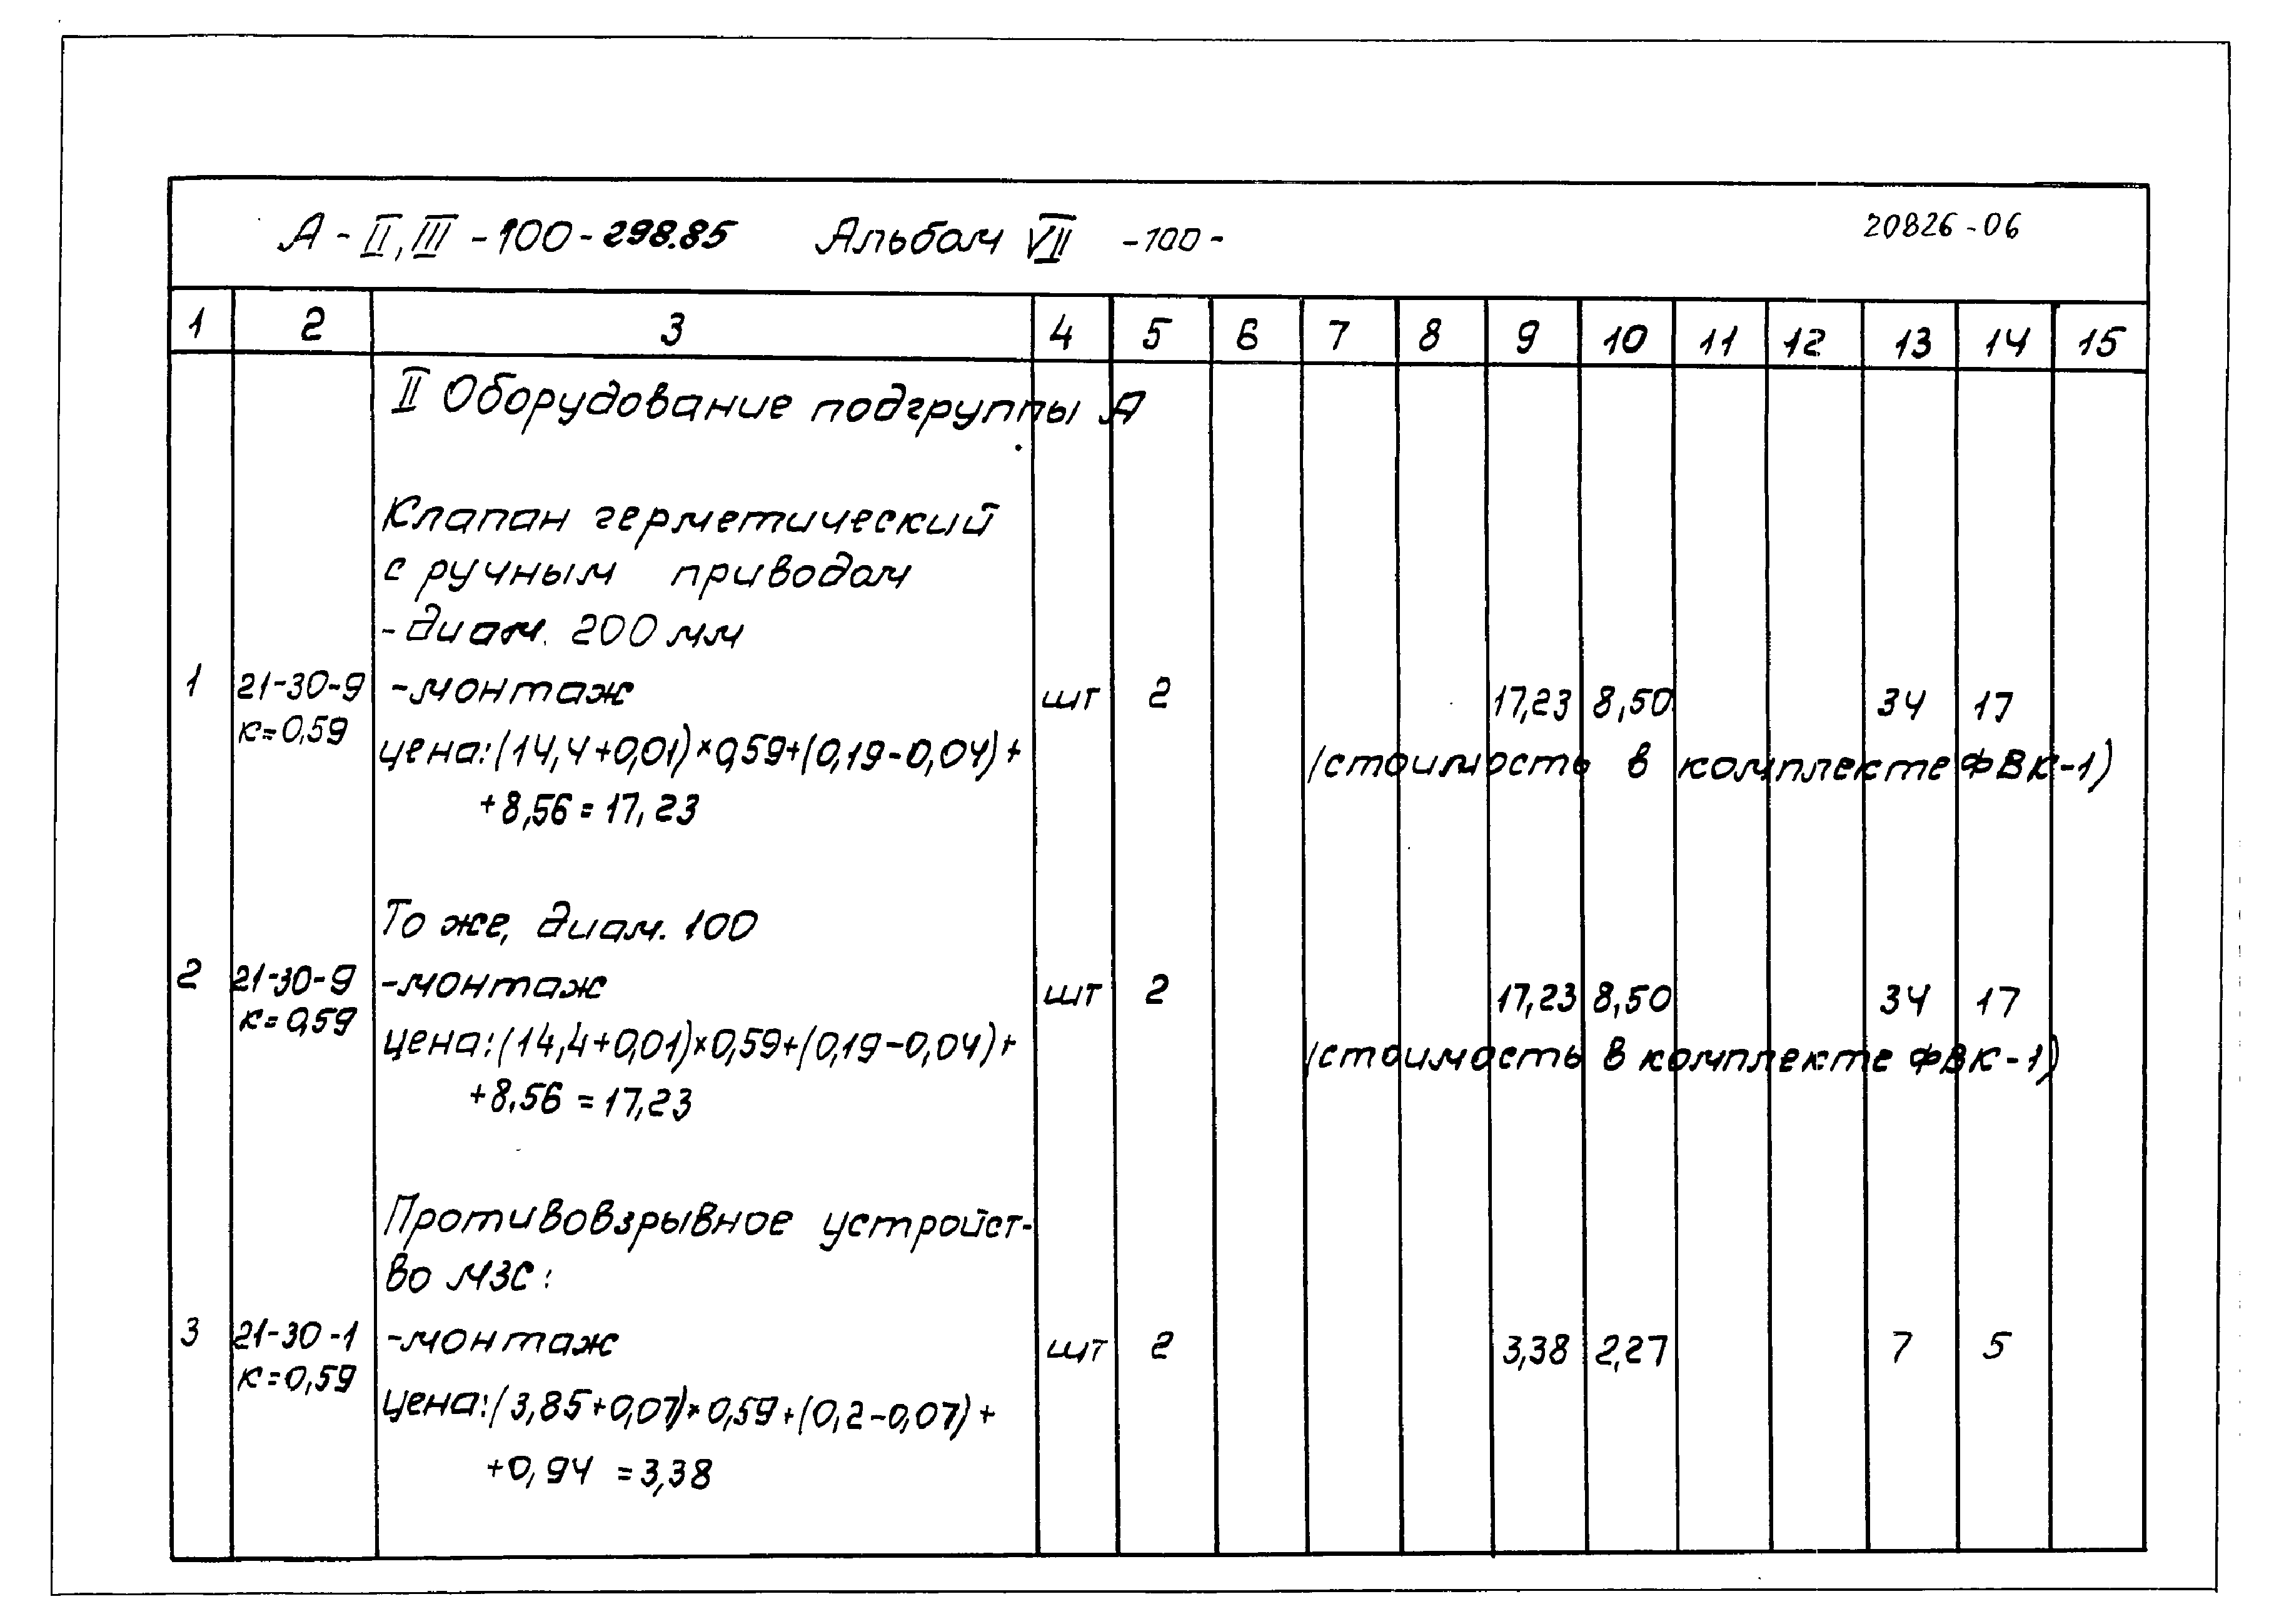 А - II, III - 100 - 298.85 Альбом VII -100- 20826-06
1 2 3 4 5 6 7 8 9 10 11 12 13 14 15
II Оборудование подгруппы А
Клапан герметический
с ручным приводом
- диам. 200 мм
1 21-30-9 -монтаж шт 2 17,23 8,50 34 17
к=0,59
цена: (14,4+0,01)×0,59+(0,19-0,04)+ /стоимость в комплекте ФВК-1)
+8,56 = 17,23
То же, диам. 100
2 21-30-9 -монтаж шт 2 17,23 8,50 34 17
к=0,59
цена: (14,4+0,01)×0,59+(0,19-0,04)+ /стоимость в комплекте ФВК-1)
+8,56 = 17,23
Противовзрывное устройст-
во МЗС:
3 21-30-1 -монтаж шт 2 3,38 2,27 7 5
к=0,59
цена: (3,85+0,07)×0,59+(0,2-0,07)+
+0,94 = 3,38